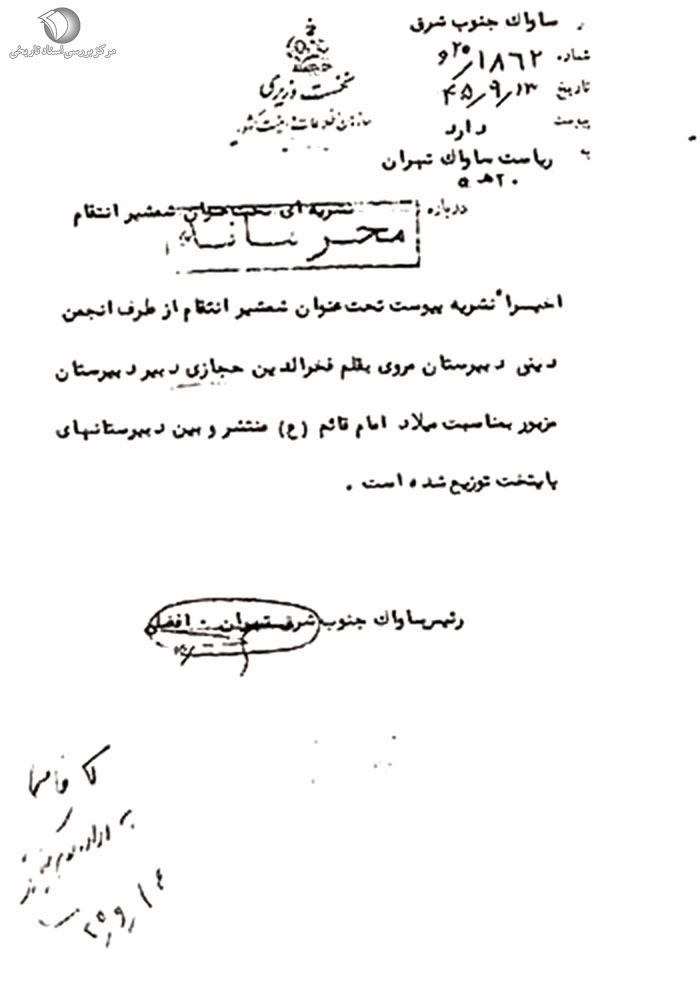 مرکز بررسی اسناد تاریخی
ساواك جنوب شرق
نخست وزیری
سازمان اطلاعات و امنیت کشور
شماره ۱۸۶۲
تاریخ ۴۵/۹/۱۳
پیوست دارد
به ریاست ساواك تهران
۲۰ هـ ۵
درباره نشریه ای تحت عنوان شمشیر انتقام
محرمانه
اخیرا" نشریه پیوست تحت عنوان شمشیر انتقام از طرف انجمن
دینی دبیرستان مروی بقلم فخرالدین حجازی دبیر دبیرستان
مزبور بمناسبت میلاد امام قائم (ع) منتشر و بین دبیرستانهای
پایتخت توزیع شده است .
رئیس ساواك جنوب شرق تهران - افضلی